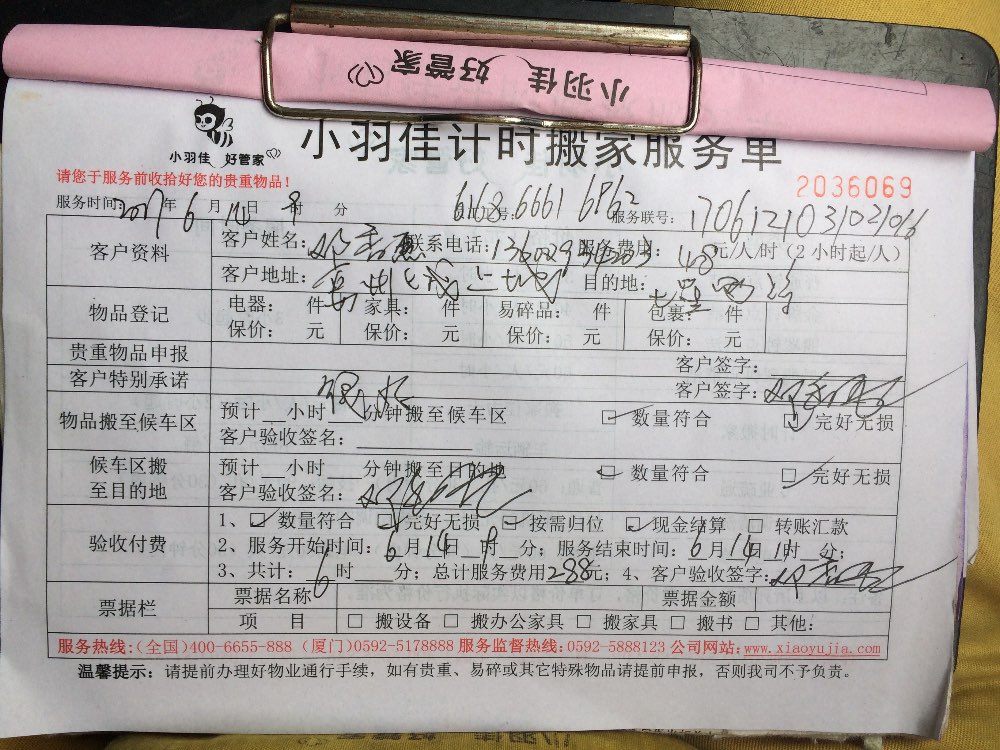 小羽佳 好管家
小羽佳 好管家
小羽佳计时搬家服务单
请您于服务前收拾好您的贵重物品！
2036069
服务时间：2017年6月14日8时 分 工号：6168 6661 6862 服务联号：1706121031021016
客户资料 客户姓名： 联系电话： 服务费用：48元/人/时（2小时起/人）
客户地址： 目的地：
物品登记 电器： 件 家具： 件 易碎品： 件 包裹： 件
保价： 元 保价： 元 保价： 元 保价： 元
贵重物品申报 客户签字：
客户特别承诺 客户签字：
物品搬至候车区 预计__小时____分钟搬至候车区 ☑ 数量符合 ☑ 完好无损
客户验收签名：
候车区搬至目的地 预计__小时____分钟搬至目的地 ☑ 数量符合 ☑ 完好无损
客户验收签名：
验收付费 1、☑ 数量符合 ☑ 完好无损 ☑ 按需归位 ☑ 现金结算 □ 转账汇款
2、服务开始时间：6月14日 时 分；服务结束时间：6月14日11时 分；
3、共计：6时 分；总计服务费用288元；4、客户验收签字：
票据栏 票据名称 票据金额
项 目 □ 搬设备 □ 搬办公家具 □ 搬家具 □ 搬书 □ 其他：
服务热线：（全国）400-6655-888（厦门）0592-5178888 服务监督热线：0592-5888123 公司网站：www.xiaoyujia.com
温馨提示：请提前办理好物业通行手续，如有贵重、易碎或其它特殊物品请提前申报，否则我司不予负责。